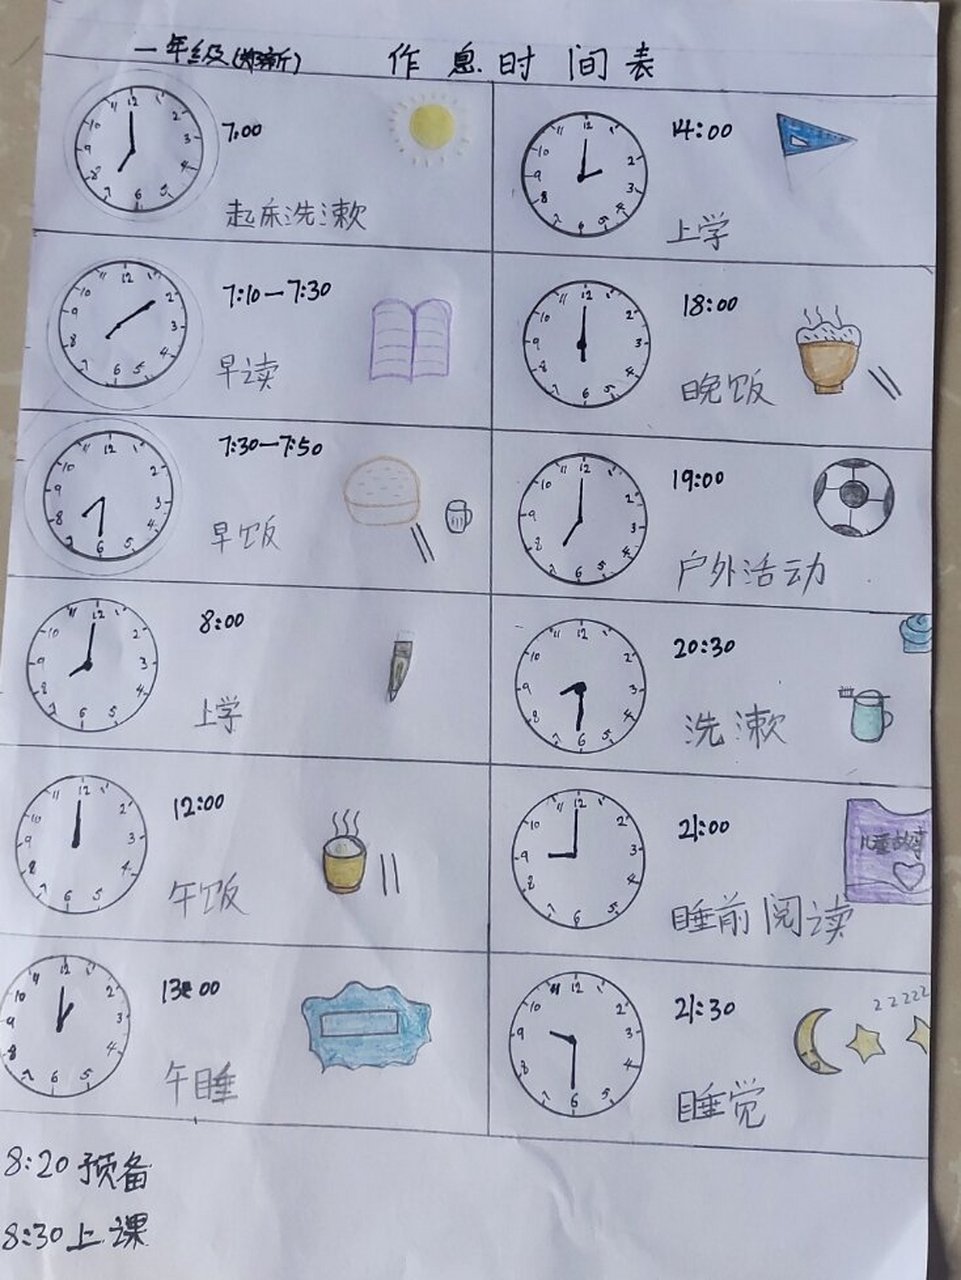 一年级(郑新) 作息时间表
7:00
起床洗漱
7:10—7:30
早读
7:30—7:50
早饭
8:00
上学
12:00
午饭
13:00
午睡
14:00
上学
18:00
晚饭
19:00
户外活动
20:30
洗漱
21:00
儿童故事
睡前阅读
21:30
zzzzz
睡觉
8:20 预备
8:30 上课